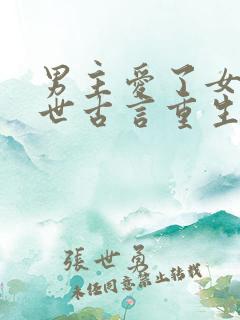 男主愛了女
世古言重生
張世勇
未经同意禁止转载